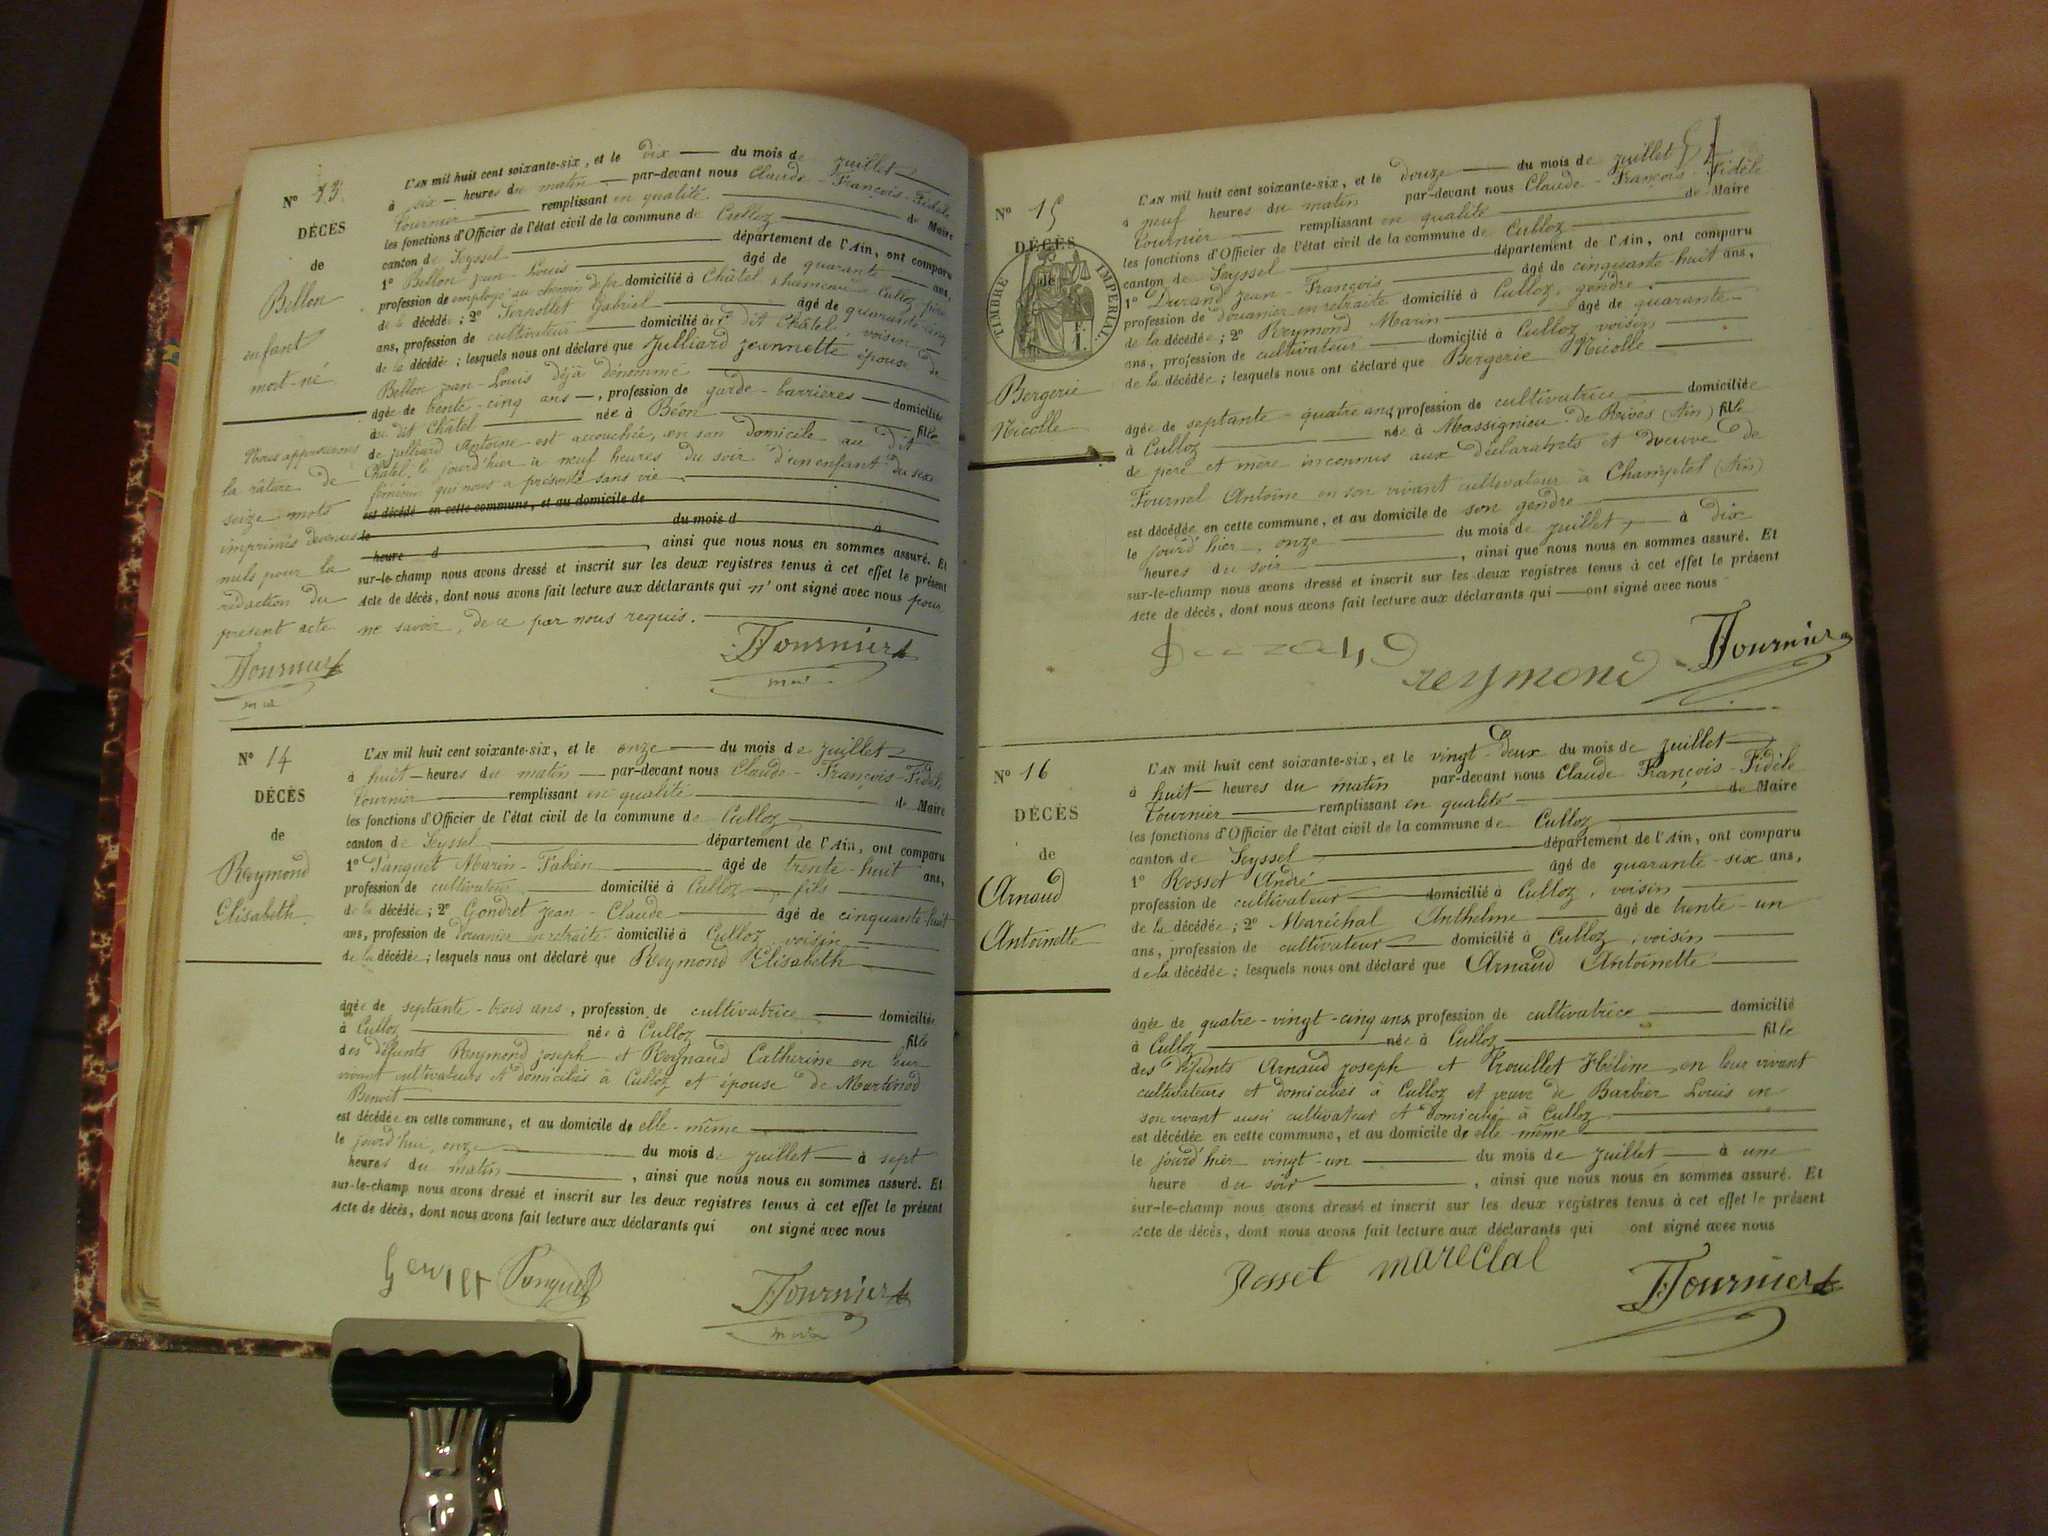 N° 13.
DÉCÈS
de
Bellon
enfant
mort-né
Nous approuvons
la râture de
seize mots
imprimés devenus
nuls pour la
rédaction du
présent acte
Fournier
L'AN mil huit cent soixante-six, et le dix du mois de juillet
à six heures du matin par-devant nous Claude-François-Fidèle
Fournier remplissant en qualité de Maire
les fonctions d'Officier de l'état civil de la commune de Culloz
canton de Seyssel département de l'Ain, ont comparu
1° Bellon Jean-Louis âgé de quarante ans,
profession de employé au chemin de fer domicilié à Châtel, hameau Culloz, père
de la décédée; 2° Gabriel âgé de quarante-cinq
ans, profession de cultivateur domicilié à dit Châtel, voisin
de la décédée; lesquels nous ont déclaré que Julliard Jeannette épouse de
Bellon Jean-Louis déjà dénommé
âgée de trente-cinq ans, profession de garde-barrières domiciliée
au dit Châtel née à Béon fille
de Julliard Antoine est accouchée, en son domicile au dit
Châtel, le jourd'hier à neuf heures du soir d'un enfant du sexe
féminin qui nous a présenté sans vie
est décédé en cette commune, et au domicile de
le du mois d à
heure d , ainsi que nous nous en sommes assuré. Et
sur-le-champ nous avons dressé et inscrit sur les deux registres tenus à cet effet le présent
Acte de décès, dont nous avons fait lecture aux déclarants qui n'ont signé avec nous pour
ne savoir, de ce par nous requis.
Fournier
N° 14
DÉCÈS
de
Reymond
Elisabeth
L'AN mil huit cent soixante-six, et le onze du mois de juillet
à huit heures du matin par-devant nous Claude-François-Fidèle
Fournier remplissant en qualité de Maire
les fonctions d'Officier de l'état civil de la commune de Culloz
canton de Seyssel département de l'Ain, ont comparu
1° Panquet Marin-Fabien âgé de trente-huit ans,
profession de cultivateur domicilié à Culloz, fils
de la décédée; 2° Gondret Jean-Claude âgé de cinquante-huit
ans, profession de douanier en retraite domicilié à Culloz voisin
de la décédée; lesquels nous ont déclaré que Reymond Elisabeth
âgée de septante-trois ans, profession de cultivatrice domiciliée
à Culloz née à Culloz fille
des défunts Reymond Joseph et Reynaud Catherine en leur
vivant cultivateurs et domiciliés à Culloz et épouse de Martinod
Benoit
est décédée en cette commune, et au domicile de elle-même
le jourd'hui, onze du mois de juillet à sept
heures du matin , ainsi que nous nous en sommes assuré. Et
sur-le-champ nous avons dressé et inscrit sur les deux registres tenus à cet effet le présent
Acte de décès, dont nous avons fait lecture aux déclarants qui ont signé avec nous
Panquet Fournier
N° 15
DÉCÈS
de
TIMBRE IMPERIAL.
Bergerie
Nicolle
L'AN mil huit cent soixante-six, et le douze du mois de juillet
à neuf heures du matin par-devant nous Claude-François-Fidèle
Fournier remplissant en qualité de Maire
les fonctions d'Officier de l'état civil de la commune de Culloz
canton de Seyssel département de l'Ain, ont comparu
1° Durand Jean-François âgé de cinquante-huit ans,
profession de douanier en retraite domicilié à Culloz, gendre
de la décédée; 2° Reymond Marin âgé de quarante
ans, profession de cultivateur domicilié à Culloz voisin
de la décédée; lesquels nous ont déclaré que Bergerie Nicolle
âgée de septante-quatre ans profession de cultivatrice domiciliée
à Culloz née à Massignieu-de-Rives (Ain) fille
de père et mère inconnus aux déclarants et veuve de
Fournel Antoine en son vivant cultivateur à Champtel (Ain)
est décédée en cette commune, et au domicile de son gendre
le jourd'hier, onze du mois de juillet, à dix
heures du soir , ainsi que nous nous en sommes assuré. Et
sur-le-champ nous avons dressé et inscrit sur les deux registres tenus à cet effet le présent
Acte de décès, dont nous avons fait lecture aux déclarants qui ont signé avec nous
reymond Fournier
N° 16
DÉCÈS
de
Arnaud
Antoinette
L'AN mil huit cent soixante-six, et le vingt-deux du mois de juillet
à huit heures du matin par-devant nous Claude François-Fidèle
Fournier remplissant en qualité de Maire
les fonctions d'Officier de l'état civil de la commune de Culloz
canton de Seyssel département de l'Ain, ont comparu
1° Rosset André âgé de quarante-six ans,
profession de cultivateur domicilié à Culloz, voisin
de la décédée; 2° Maréchal Anthelme âgé de trente-un
ans, profession de cultivateur domicilié à Culloz, voisin
de la décédée; lesquels nous ont déclaré que Arnaud Antoinette
âgée de quatre-vingt-cinq ans profession de cultivatrice domicilié
à Culloz née à Culloz fille
des défunts Arnaud Joseph et Trouillet Hélène en leur vivant
cultivateurs et domiciliés à Culloz et veuve de Barbier Louis en
son vivant aussi cultivateur et domicilié à Culloz
est décédée en cette commune, et au domicile de elle-même
le jourd'hier vingt-un du mois de juillet à une
heure du soir , ainsi que nous nous en sommes assuré. Et
sur-le-champ nous avons dressé et inscrit sur les deux registres tenus à cet effet le présent
Acte de décès, dont nous avons fait lecture aux déclarants qui ont signé avec nous
Rosset mareclal Fournier